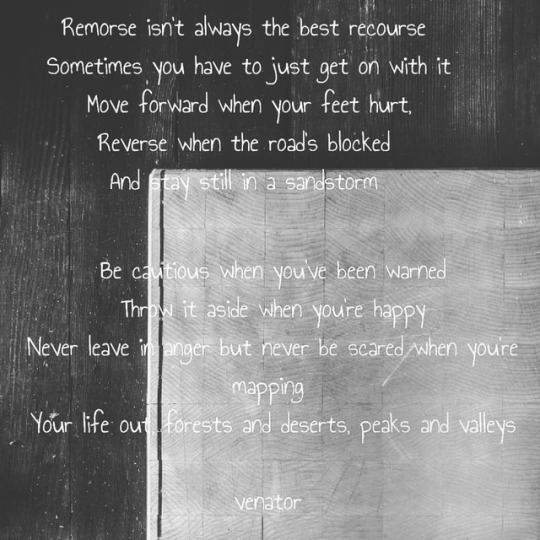 Remorse isn't always the best recourse
Sometimes you have to just get on with it
Move forward when your feet hurt,
Reverse when the road's blocked
And stay still in a sandstorm
Be cautious when you've been warned
Throw it aside when you're happy
Never leave in anger but never be scared when you're
mapping
Your life out, forests and deserts, peaks and valleys
venator